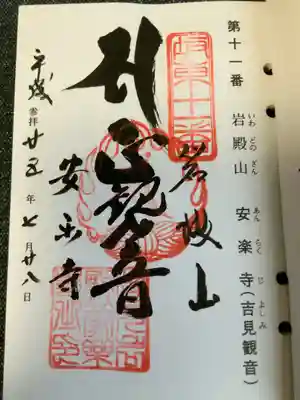 第十一番 岩殿山 安楽寺(吉見観音)
いわ どの ざん あん らく じ よしみ
坂東十一番
岩殿山
観音
安楽寺
平成廿五年七月廿八日
参拝